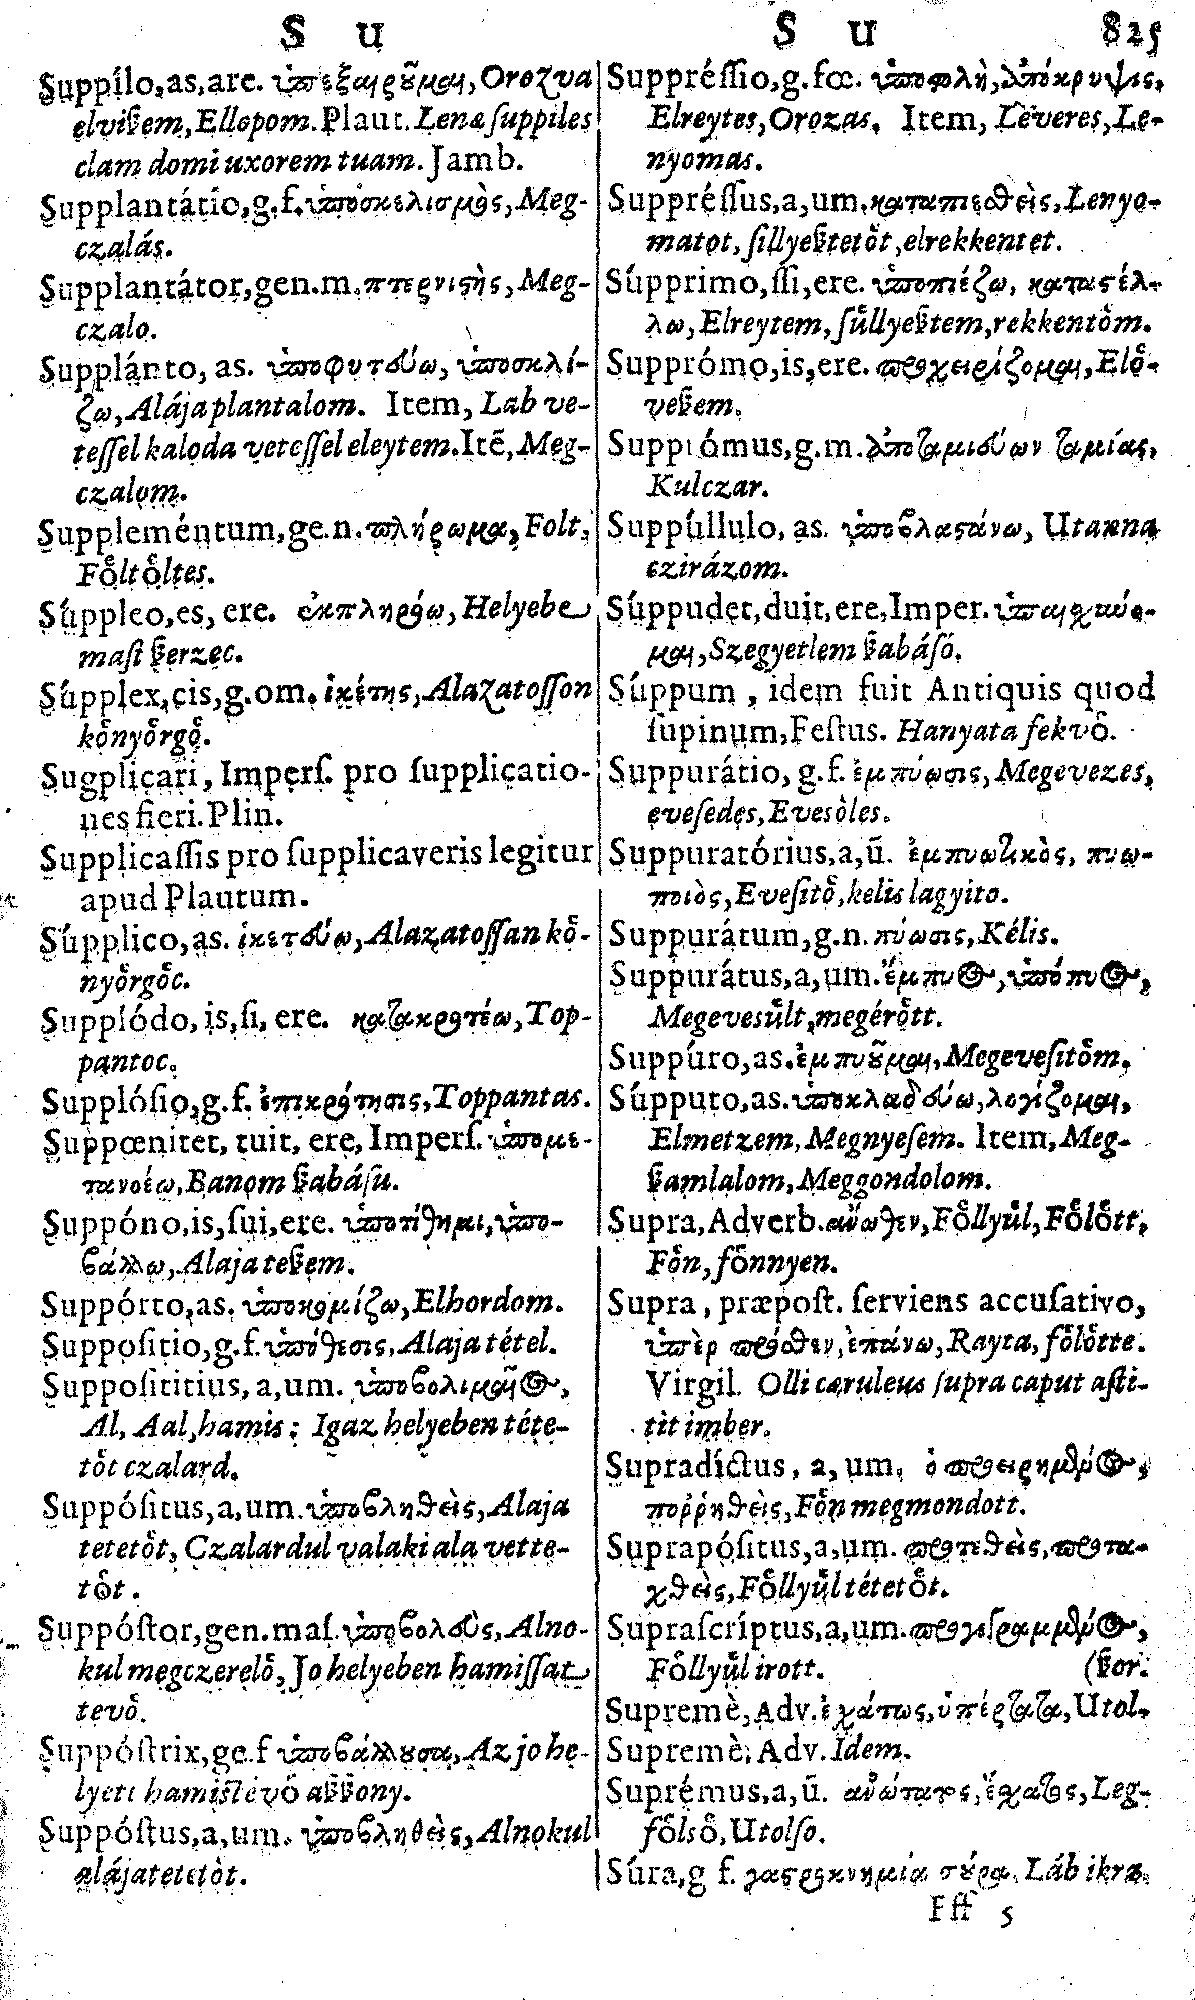 S u
Suppílo, as, are. ὑπεξαιροῦμαι, Orozva
elviſzem, Ellopom. Plaut. Lenæ ſuppiles
clam domi uxorem tuam. Jamb.
Supplantátio, g. f. ὑποσκελισμὸς, Meg-
czalás.
Supplantátor, gen. m. πτερνιστὴς, Meg-
czalo.
Supplánto, as. ὑποφυτεύω, ὑποσκλί-
ζω, Alája plantalom. Item, Lab ve-
teſſel kaloda veteſſel eleytem. Itē, Meg-
czalom.
Suppleméntum, ge. n. πλήρωμα, Folt,
Foͤltoͤltes.
Súppleo, es, ere. ἐκπληρόω, Helyebe
maſt ſzerzec.
Súpplex, cis, g. om. ἱκέτης, Alazatoſſon
koͤnyoͤrgoͤ.
Sugplicari, Imperſ. pro ſupplicatio-
nes fieri. Plin.
Supplicaſſis pro ſupplicaveris legitur
apud Plautum.
Súpplico, as. ἱκετεύω, Alazatoſſan koͤ-
nyoͤrgoͤc.
Supplódo, is, ſi, ere. κατακροτέω, Top-
pantoc.
Supplóſio, g. f. ἐπικρότησις, Toppantas.
Suppœnitet, tuit, ere, Imperſ. ὑπομε-
τανοέω, Banom ſzabáſu.
Suppóno, is, ſui, ere. ὑποτίθημι, ὑπο-
βάλλω, Alaja teſzem.
Suppórto, as. ὑποκομίζω, Elhordom.
Suppoſitio, g. f. ὑπόθεσις, Alaja tétel.
Suppoſititius, a, um. ὑποβολιμαῖος,
Al, Aal, hamis: Igaz helyeben téte-
toͤt czalard.
Suppóſitus, a, um. ὑποβληθεὶς, Alaja
tetetoͤt, Czalardul valaki ala vette-
toͤt.
Suppóſtor, gen. maſ. ὑποβολεὺς, Alno-
kul megczereloͤ, Jo helyeben hamiſſat
tevoͤ.
Suppóſtrix, ge. f ὑποβάλλουσα, Az jo he-
lyett hamiſt evoͤ aſzſzony.
Suppóſtus, a, um. ὑποβληθεὶς, Alnokul
alája tetetoͤt.
S u 825
Suppréſſio, g. fœ. ὑποφυλὴ, ἀπόκρυψις,
Elreytes, Orozas. Item, Leveres, Le-
nyomas.
Suppréſſus, a, um. καταπιεσθεὶς, Lenyo-
matot, ſillyeſztetoͤt, elrekkentet.
Súpprimo, ſſi, ere. ὑποπιέζω, καταστέλ-
λω, Elreytem, ſuͤllyeſztem, rekkentoͤm.
Supprómo, is, ere. προχειρίζομαι, Eloͤ-
veſzem.
Supprómus, g. m. ἀποταμιεύων ταμίας,
Kulczar.
Suppúllulo, as. ὑποβλαστάνω, Utanna
czirázom.
Súppudet, duit, ere, Imper. ὑπαισχύνο-
μαι, Szegyetlem ſzabáſó.
Súppum, idem fuit Antiquis quod
ſupinum, Feſtus. Hanyata fekvoͤ.
Suppurátio, g. f. ἐμπύωσις, Megevezes,
eveſedes, Eveſoͤles.
Suppuratórius, a, ū. ἐμπυωτικὸς, πυω-
ποιὸς, Eveſitoͤ, kelis lagyito.
Suppurátum, g. n. πύωσις, Kélis.
Suppurátus, a, um. ἔμπυος, ὑπόπυος,
Megevesuͤlt, megéroͤtt.
Suppúro, as. ἐμπυοῦμαι, Megeveſitoͤm.
Súpputo, as. ὑποκλαδεύω, λογίζομαι,
Elmetzem, Megnyeſem. Item, Meg-
ſzamlalom, Meggondolom.
Supra, Adverb. ἄνωθεν, Foͤllyuͤl, Foͤloͤtt,
Foͤn, foͤnnyen.
Supra, præpoſt. ſerviens accuſativo,
ὑπὲρ πρόσθεν, ἐπάνω, Rayta, foͤloͤtte.
Virgil. Olli cæruleus ſupra caput aſti-
tit imber.
Supradíctus, a, um. ὁ προειρημένος,
ποῤῥηθεὶς, Foͤn megmondott.
Suprapóſitus, a, um. προτεθεὶς, προτα-
χθεὶς, Foͤllyuͤl tétetoͤt.
Supraſcríptus, a, um. προγεγραμμένος,
Foͤllyuͤl irott. (ſzor.
Supremè, Adv. ἐσχάτως, ὑπέρτατα, Utol-
Supremè, Adv. Idem.
Suprémus, a, ū. ἀνώτατος, ἔσχατος, Leg-
foͤlsoͤ, Utolſo.
Súra, g f. γαστροκνημία σύρα. Láb ikra.
Fff 5